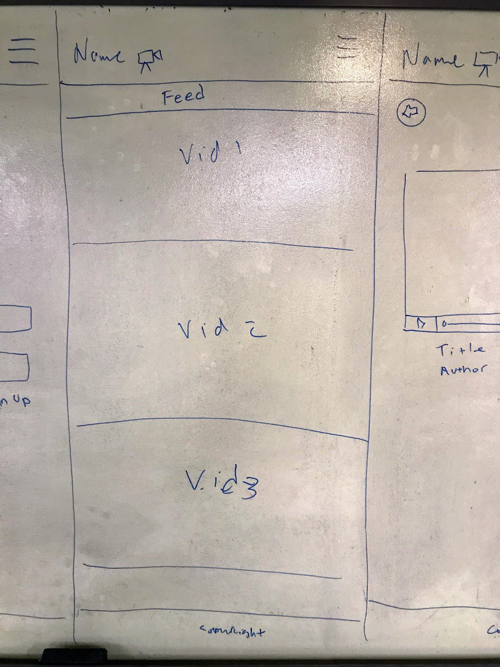 Name
Feed
Vid 1
Vid 2
Vid3
n Up
Name
Title
Author